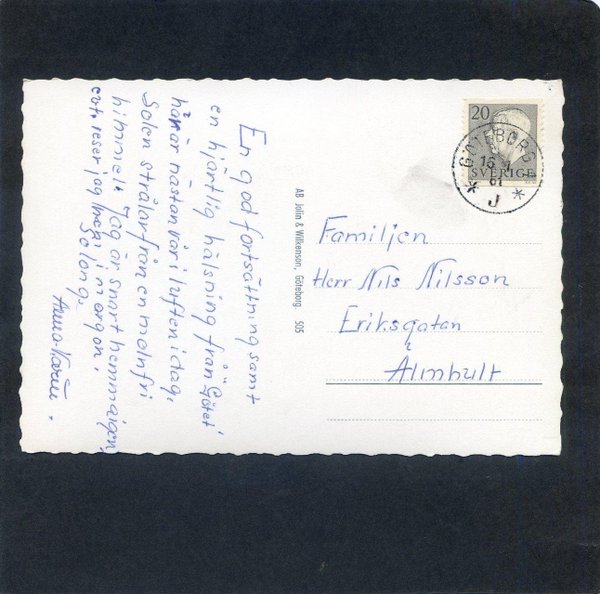 En god fortsättning samt
en hjärtlig hälsning från "Götet"
här är nästan vår i luften idag,
Solen strålar från en molnfri
himmel. Jag är snart hemma igen,
evt. reser jag hem i morgon.
So long.
Anna-Karin.
AB Jolin & Wilkenson, Göteborg. 505
20
SVERIGE
GÖTEBORG
16
61
J
Familjen
Herr Nils Nilsson
Eriksgatan
Älmhult